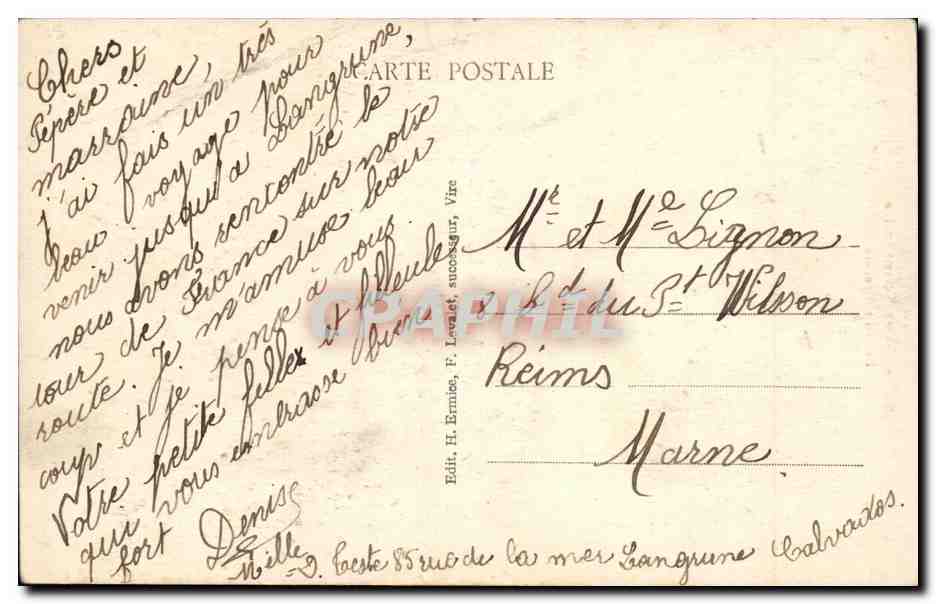 CARTE POSTALE
Chers
Pépère et
marraine,
j'ai fais un très
beau voyage pour
venir jusqu'a Langrune,
nous avons rencontré le
tour de France sur notre
route. Je m'amuse beau
coup et je pense à vous.
Votre petite fillex et filleule
qui vous embrasse biens
fort
Denise
Melle D. Teste 85 rue de la mer Langrune Calvados.
Edit. H. Ermice, F. Lavalet, successeur, Vire
Mr et Me Lignon
2 Bd du Pt Wilsson
Réims
Marne.
CPAPHIL